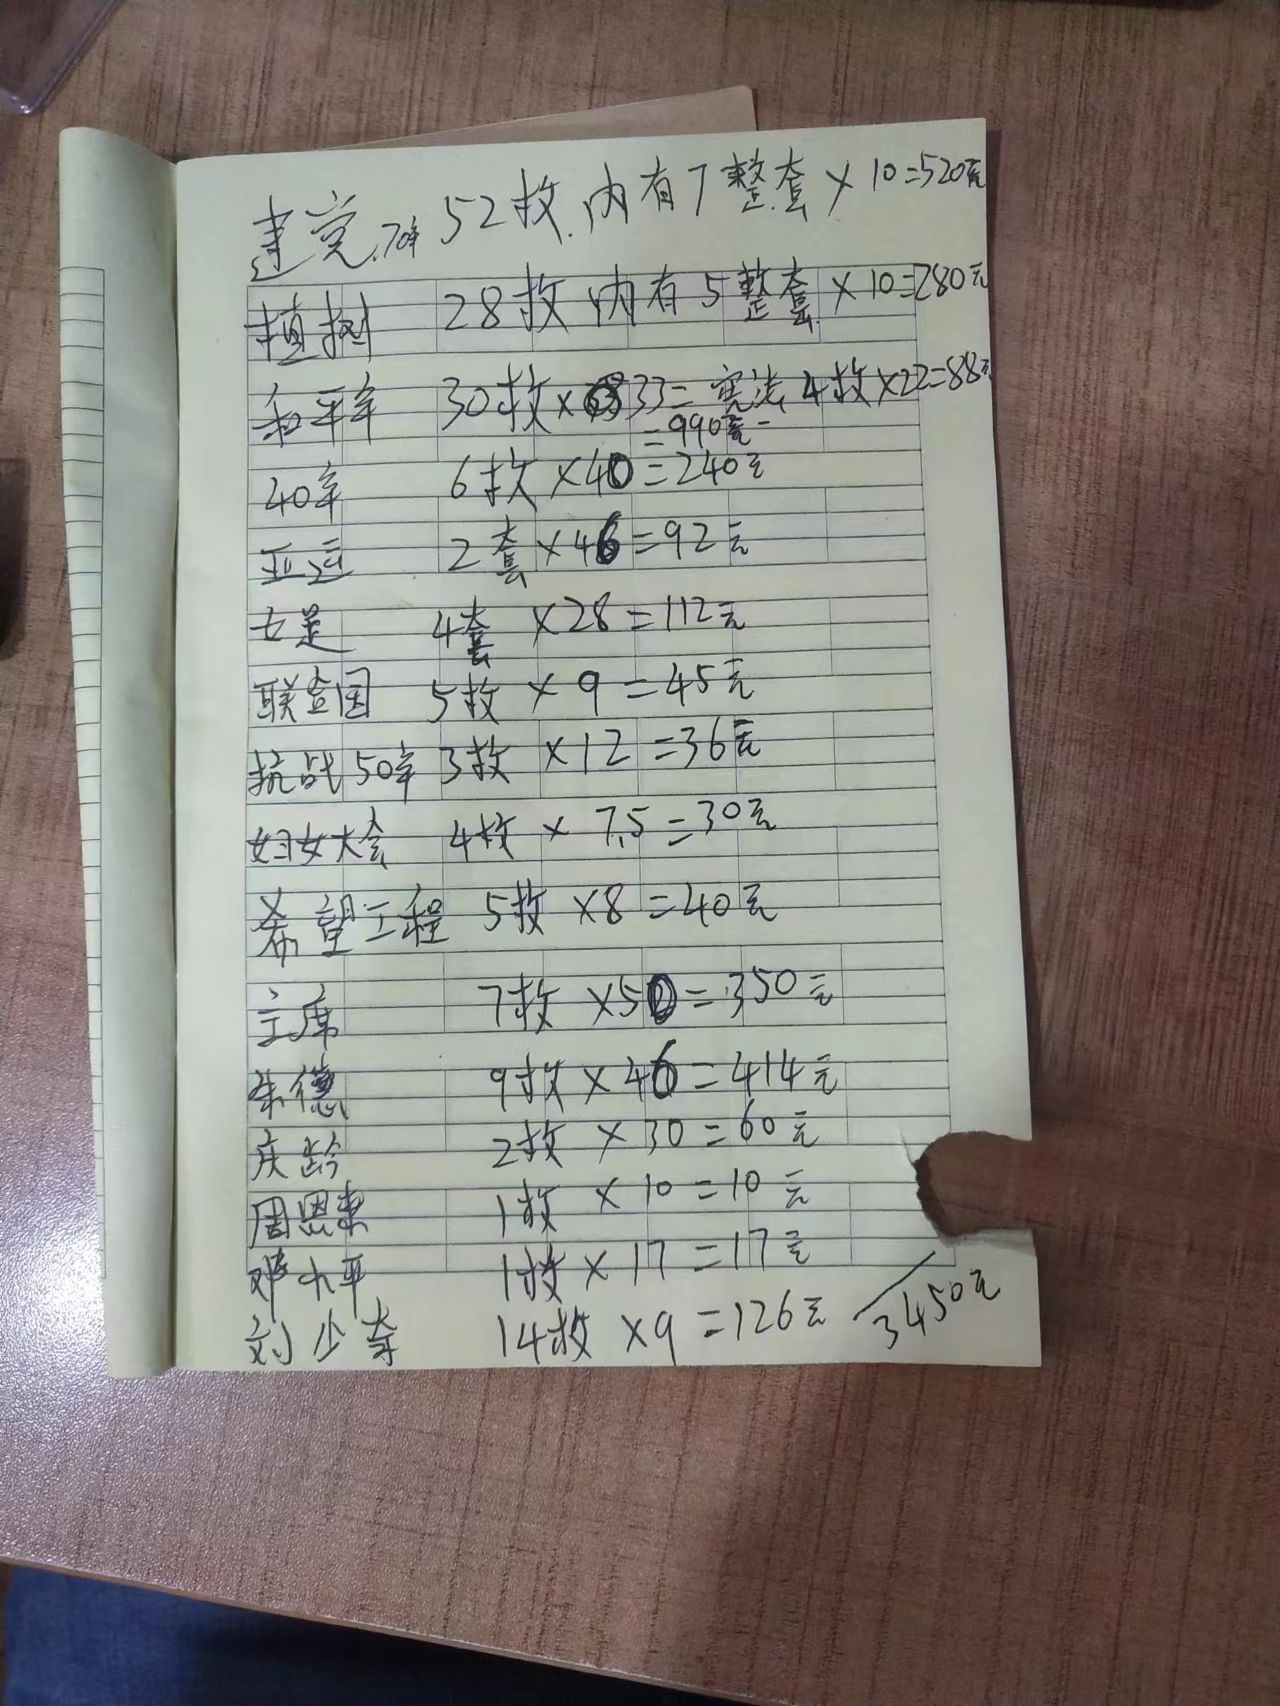 建党70年 52枚.内有7整套×10=520元
植树 28枚内有5整套×10=280元
和平年 30枚×33= 宪法4枚×22=88元
=990元
40年 6枚×40=240元
亚运 2套×46=92元
女足 4套×28=112元
联合国 5枚×9=45元
抗战50年 3枚×12=36元
妇女大会 4枚×7.5=30元
希望工程 5枚×8=40元
主席 7枚×50=350元
朱德 9枚×46=414元
庆龄 2枚×30=60元
周恩来 1枚×10=10元
邓小平 1枚×17=17元
刘少奇 14枚×9=126元
3450元